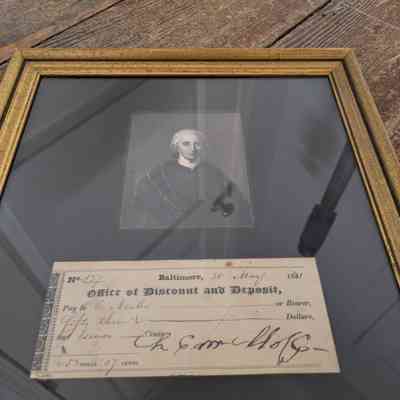 No. 137 Baltimore, May 181
Office of Discount and Deposit,
Pay to or Bearer,
Fifty three Dollars,
and Seven Cents.
Ch Carroll of C
53 DOLLS. 07 CENTS.